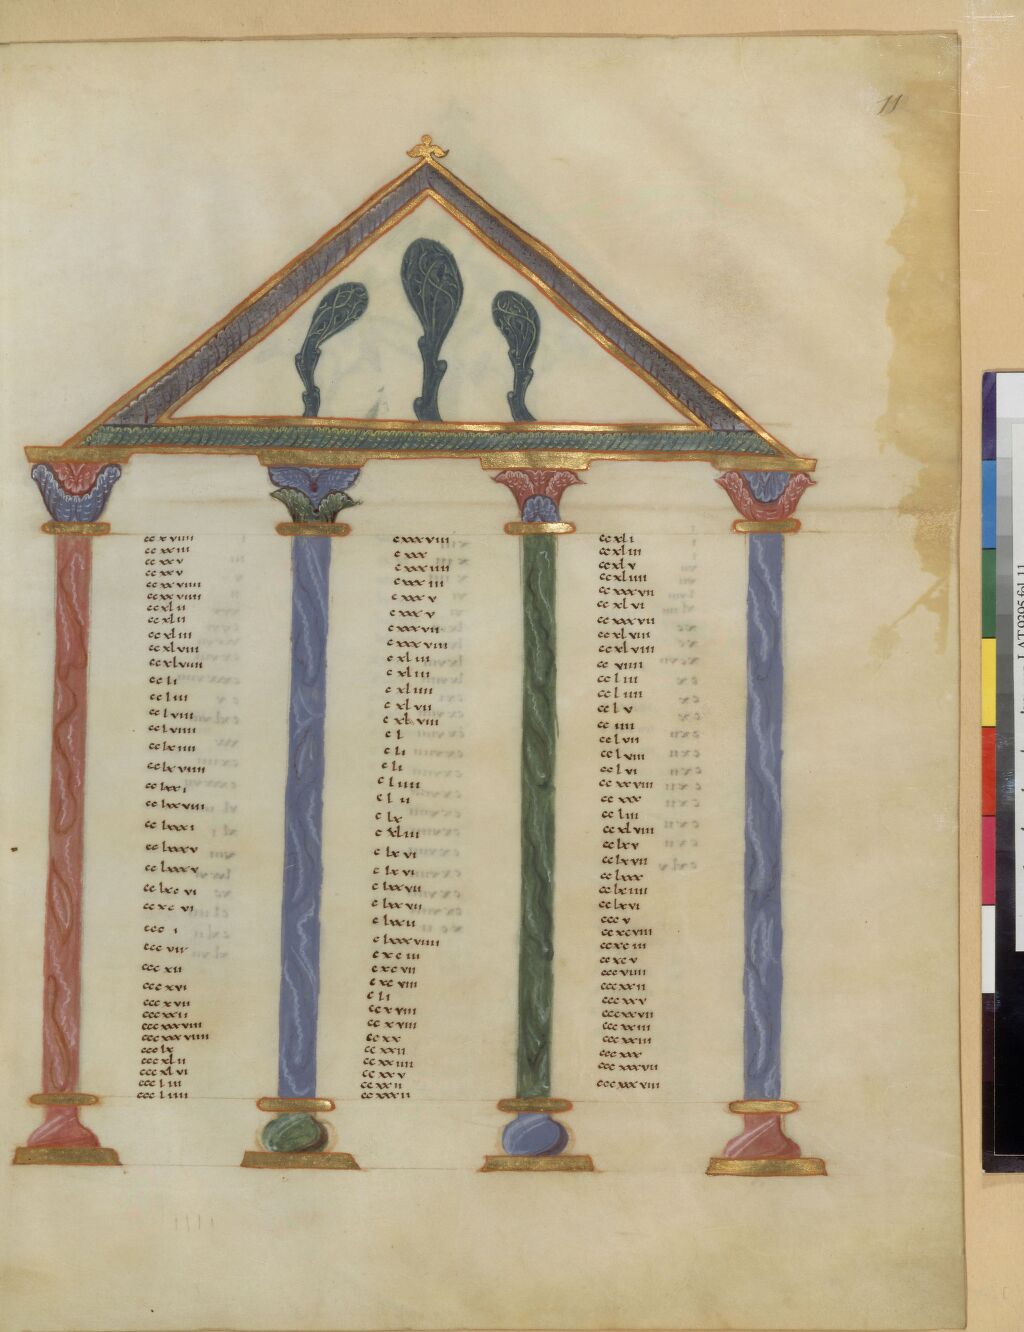 11
cc x viiii
cc xx iii
cc xx v
cc xx v
cc xx viiii
cc xx viiii
cc xl ii
cc xl ii
cc xl iii
cc xl viii
cc xl viiii
cc l i
cc l iii
cc l viii
cc l viiii
cc lx iiii
cc lx viiii
cc lxx i
cc lxx viii
cc lxxx i
cc lxxx v
cc lxxx v
cc lxc vi
cc xc vi
ccc i
ccc vii
ccc xii
ccc xvi
ccc x vii
ccc xx ii
ccc xxx viii
ccc xxx viiii
ccc lx
ccc xl ii
ccc xl vi
ccc l iii
ccc l iiii
c xxx viii
c xxx
c xxx iiii
c xxx iii
c xxx v
c xxx v
c xxx vii
c xxx viii
c xl iii
c xl iii
c xl iiii
c xl vii
c xl viii
c l
c l i
c l i
c l iiii
c l ii
c lx
c xl iii
c lx vi
c lx vi
c lxx vii
c lxx vii
c lxx ii
c lxxx viiii
c xc iii
c xc vii
c xc viii
c l i
cc x viii
cc x viii
cc xx
cc xx ii
cc xx iiii
cc xx v
cc xx ii
cc xxx ii
cc xl i
cc xl iii
cc xl v
cc xl iiii
cc xxx vii
cc xl vi
cc xxx vii
cc xl viii
cc xl viii
cc viiii
cc l iii
cc l iiii
cc l v
cc iiii
cc l vii
cc l viii
cc l vi
cc xx viii
cc xxx
cc l iii
cc xl viii
cc lx v
cc lx vii
cc lxxx
cc lx iiii
cc lx vi
ccc v
cc xc viii
cc xc iii
cc xc v
ccc viiii
ccc xx ii
ccc xx v
ccc xx vii
ccc xx iii
ccc xx iii
ccc xxx
ccc xxx vii
ccc xxx viii
LAT 9385 fol 11